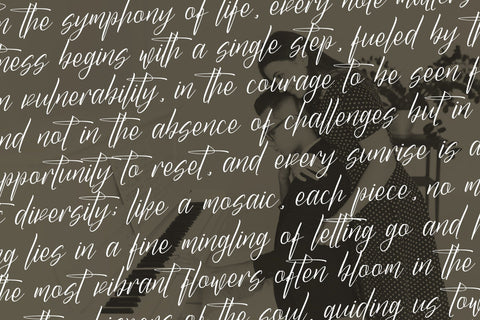 n the symphony of life, every note matters
ness begins with a single step, fueled by th
n vulnerability, in the courage to be seen f
nd not in the absence of challenges but in
pportunity to reset, and every sunrise is a
diversity; like a mosaic, each piece, no m
ng lies in a fine mingling of letting go and h
the most vibrant flowers often bloom in the
of the soul, guiding us tow